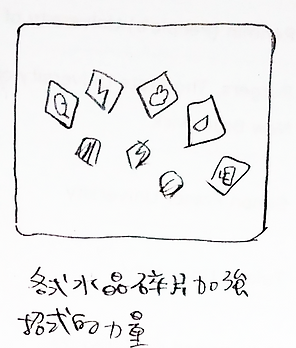 各式水晶碎片加強
招式的力量